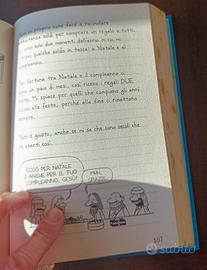 Non so proprio come farò a racimolare
abbastanza soldi per comprare un regalo a tutti.
sono solo due momenti dell'anno in cui mi
qualche soldo in tasca: a Natale e al
compleanno.
Per fortuna tra Natale e il compleanno ci
sono un paio di mesi, così ricevo i regali DUE
volte. Mi spiace per quelli che compiono gli anni
vicino alle feste, perché alla fine ci rimettono
sempre.
Non è giusto, anche se mi sa che sono secoli che
va avanti così.
ECCO PER NATALE
E ANCHE PER IL TUO
COMPLEANNO, GESÙ!
MHM,
GRAZIE.
107
subito